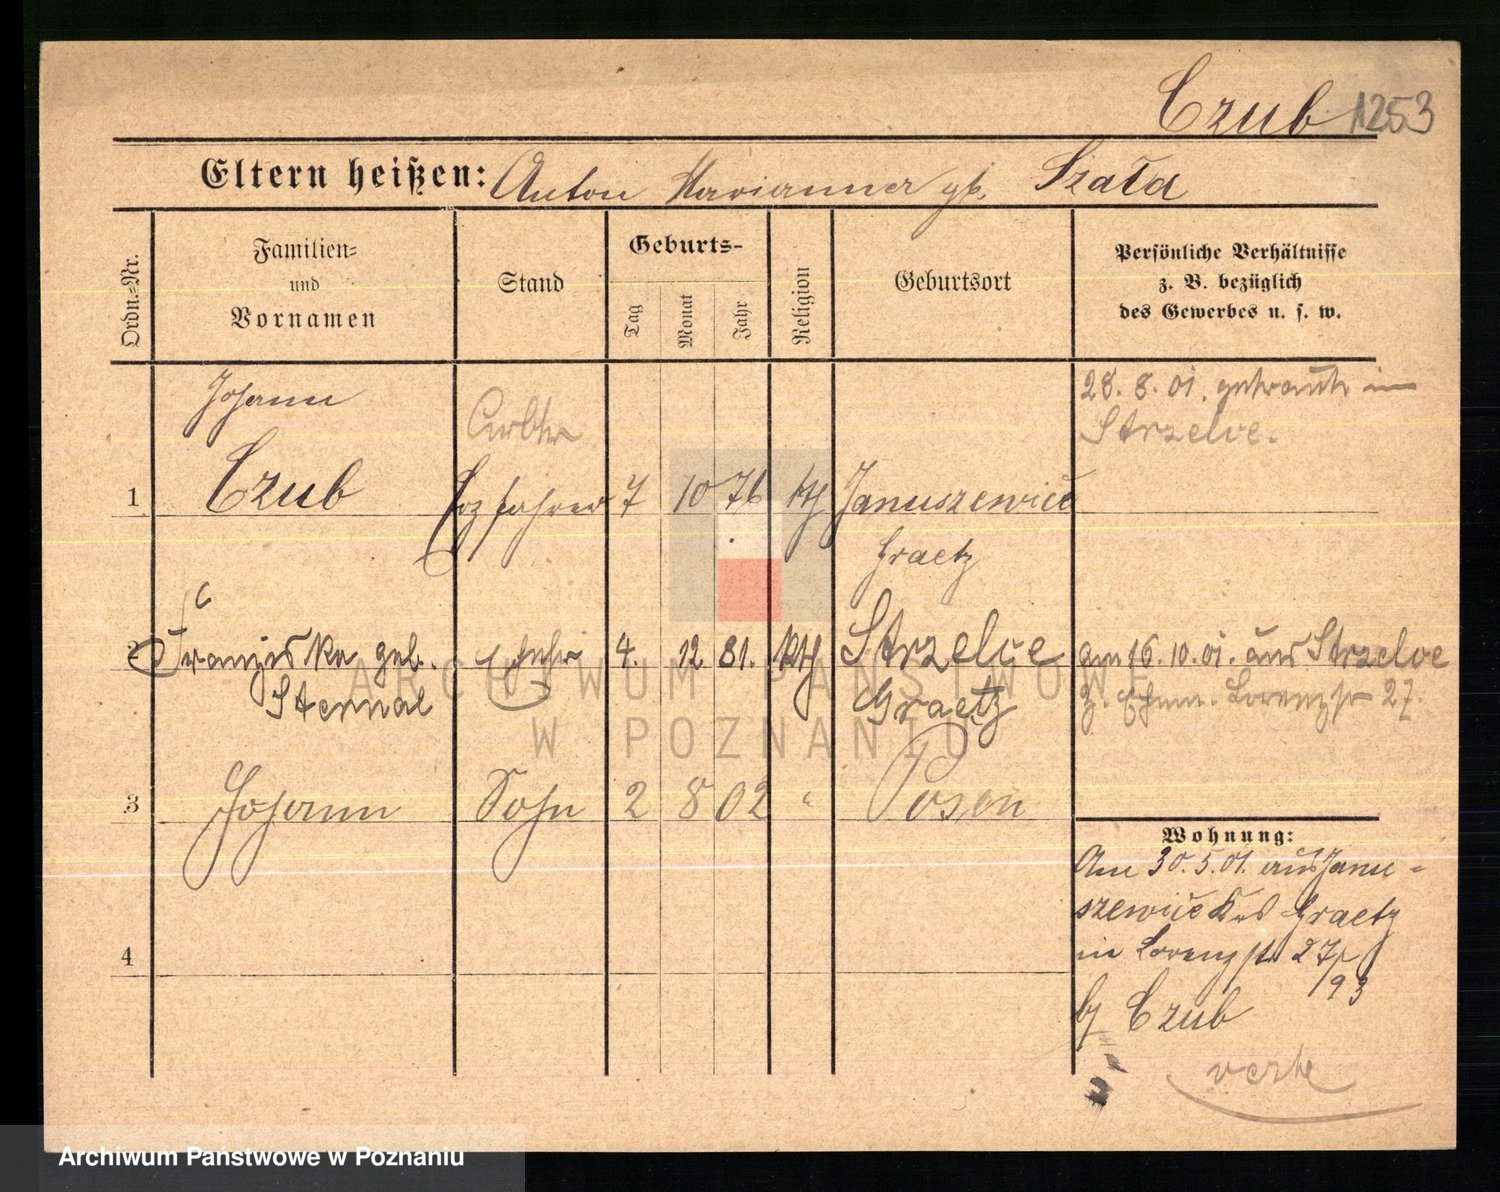 Czub 1253
Eltern heißen: Anton Marianna gb. Szała
Ordn.-Nr.
Familien-
und
Vornamen
Stand
Geburts-
Tag
Monat
Jahr
Religion
Geburtsort
Persönliche Verhältnisse
z. B. bezüglich
des Gewerbes u. s. w.
Johann
Arbtr
28. 8. 01. getraut in
Strzelce.
1 Czub 7 10 76 kth Januszewice
Graetz
2 Franziska geb. Ehefr 4. 12. 81. kth Strzelce am 16. 10. 01. aus Strzelce
Sternal Graetz z. Ehem. Lorenzstr 27.
3 Johann Sohn 2 8 02 " Posen
Wohnung:
Am 30. 5. 01. aus Janu-
szewice Krs Graetz
in Lorenzstr 27/
93
4
bj Czub
verte
ARCHIWUM PAŃSTWOWE
W POZNANIU
Archiwum Państwowe w Poznaniu